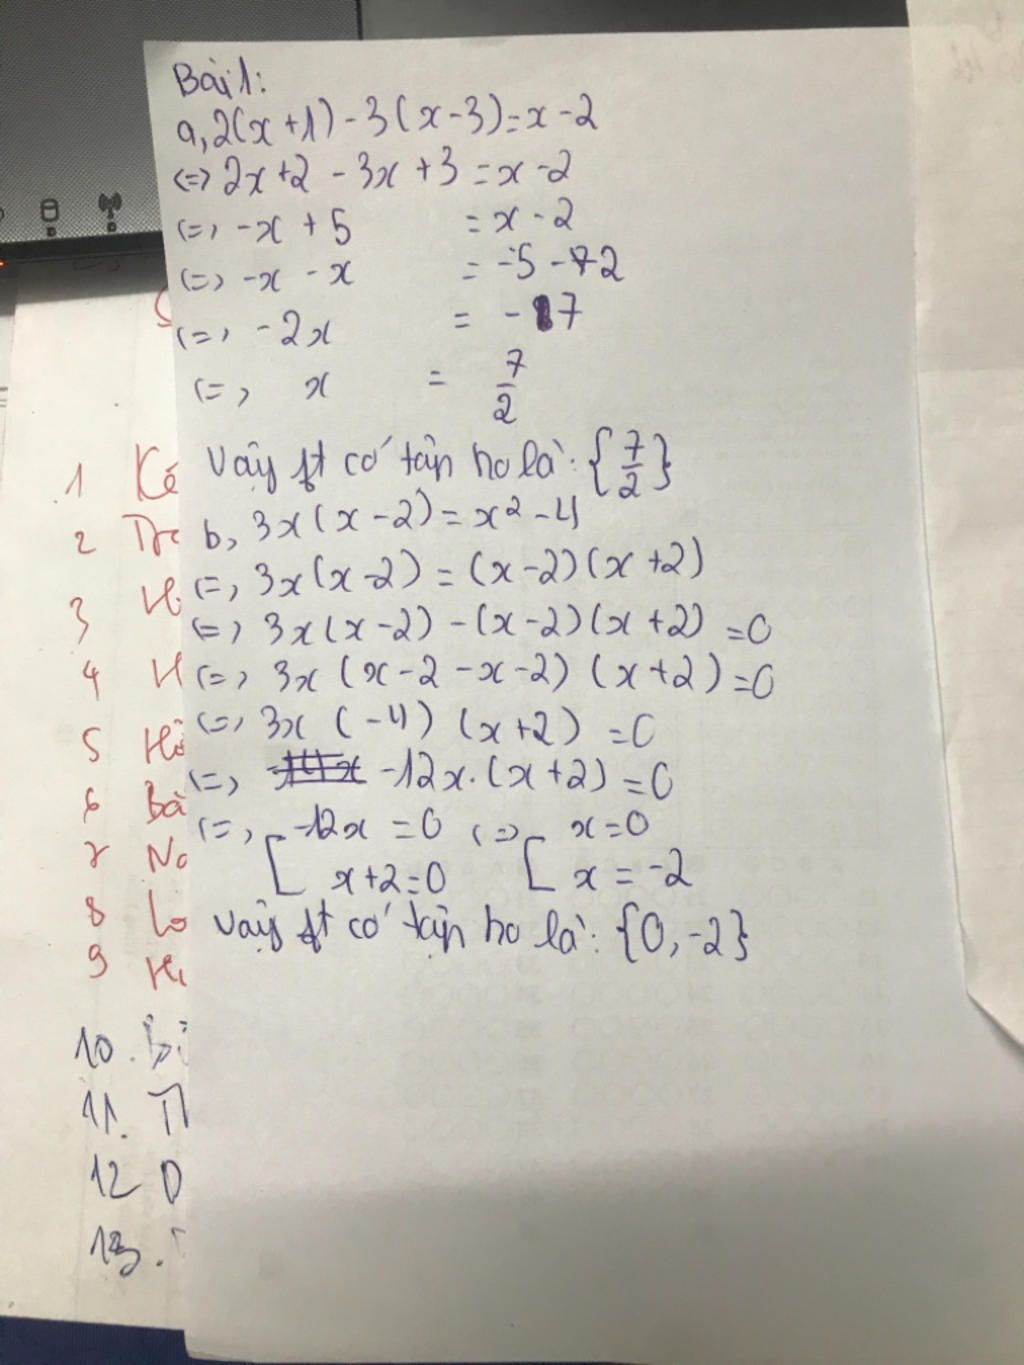 Bài 1:
a, 2(x+1) - 3(x-3) = x - 2
<=> 2x+2 - 3x + 3 = x - 2
<=> -x + 5 = x - 2
<=> -x - x = -5 - 2
<=> -2x = -7
<=> x = 7/2
Vậy pt có tập no là: {7/2}
b, 3x(x-2) = x² - 4
<=> 3x(x-2) = (x-2)(x+2)
<=> 3x(x-2) - (x-2)(x+2) = 0
<=> 3x (x-2-x-2) (x+2) = 0
<=> 3x (-4) (x+2) = 0
<=> -12x.(x+2) = 0
<=> [ -12x = 0 <=> [ x = 0
x+2 = 0 x = -2
Vậy pt có tập no là: {0, -2}
1 Ké
2
3
4
5
6 Bà
7 No
8 Lo
9
10.
11.
12 D
13.